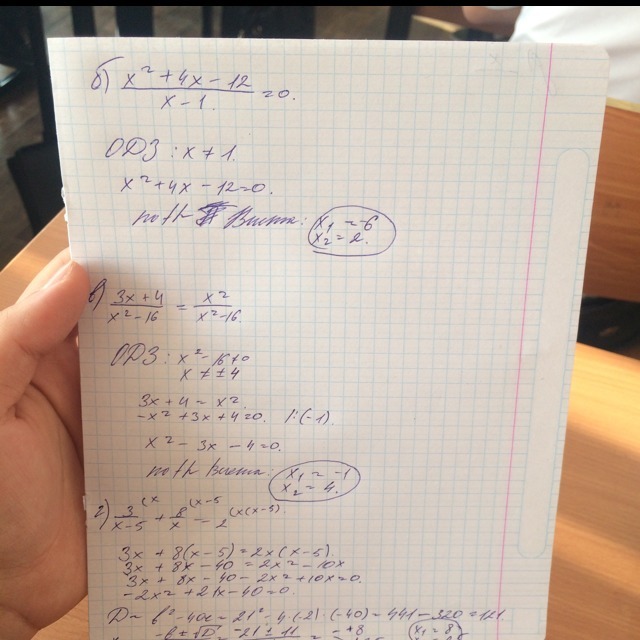 б) (x² + 4x - 12)/(x - 1) = 0.
ОДЗ : x ≠ 1.
x² + 4x - 12 = 0.
по th Виета: x₁ = -6
x₂ = 2.
в) (3x + 4)/(x² - 16) = x²/(x² - 16).
ОДЗ : x² - 16 ≠ 0
x ≠ ± 4
3x + 4 = x².
-x² + 3x + 4 = 0. |:(-1).
x² - 3x - 4 = 0.
по th Виета: x₁ = -1
x₂ = 4.
г) 3/(x - 5) (x + 8/x (x - 5 = 2 (x(x - 5)
3x + 8(x - 5) = 2x(x - 5).
3x + 8x - 40 = 2x² - 10x
3x + 8x - 40 - 2x² + 10x = 0.
-2x² + 21x - 40 = 0.
D = b² - 4ac = 21² - 4·(-2)·(-40) = 441 - 320 = 121.
x₁ = 8